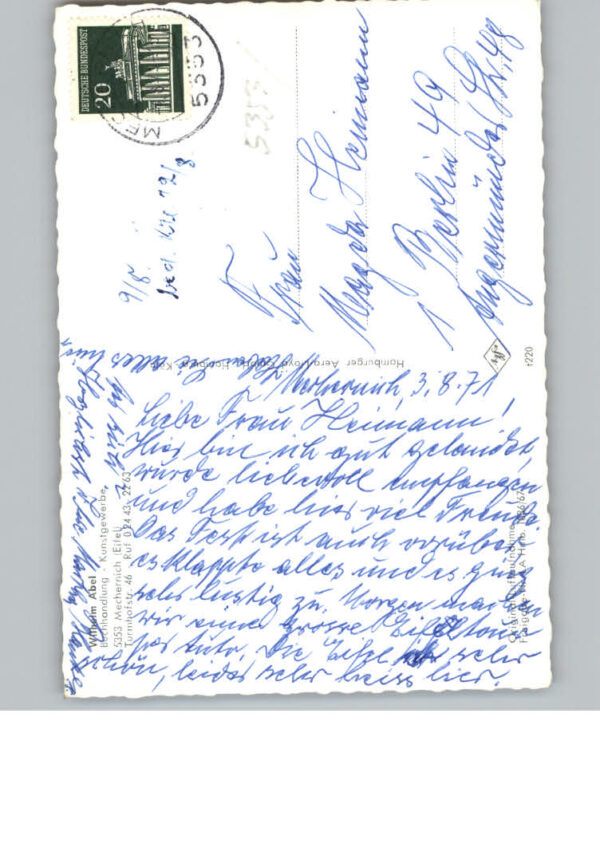 Mechernich, 3.8.71
Liebe Frau Heimann!
Hier bin ich gut gelandet,
wurde liebevoll empfangen
und habe hier viel Freude.
Das Fest ist auch vorüber
es klappte alles und es ging
sehr lustig zu. Morgen machen
wir eine grosse Eifeltour
per Auto. Die Eifel sehr
schön, leider sehr heiss hier.
Herzlichst Ihre Martha
Frau
Magda Heimann
1 Berlin 49
Angermünder Str. 48
9/8.
12/8
5353
DEUTSCHE BUNDESPOST
20
5353
Wilhelm Abel
Buchhandlung · Kunstgewerbe
5353 Mechernich (Eifel)
Turmhofstr. 46 Ruf 0 24 43 22 63
Hamburger Aero-Lloyd
t220